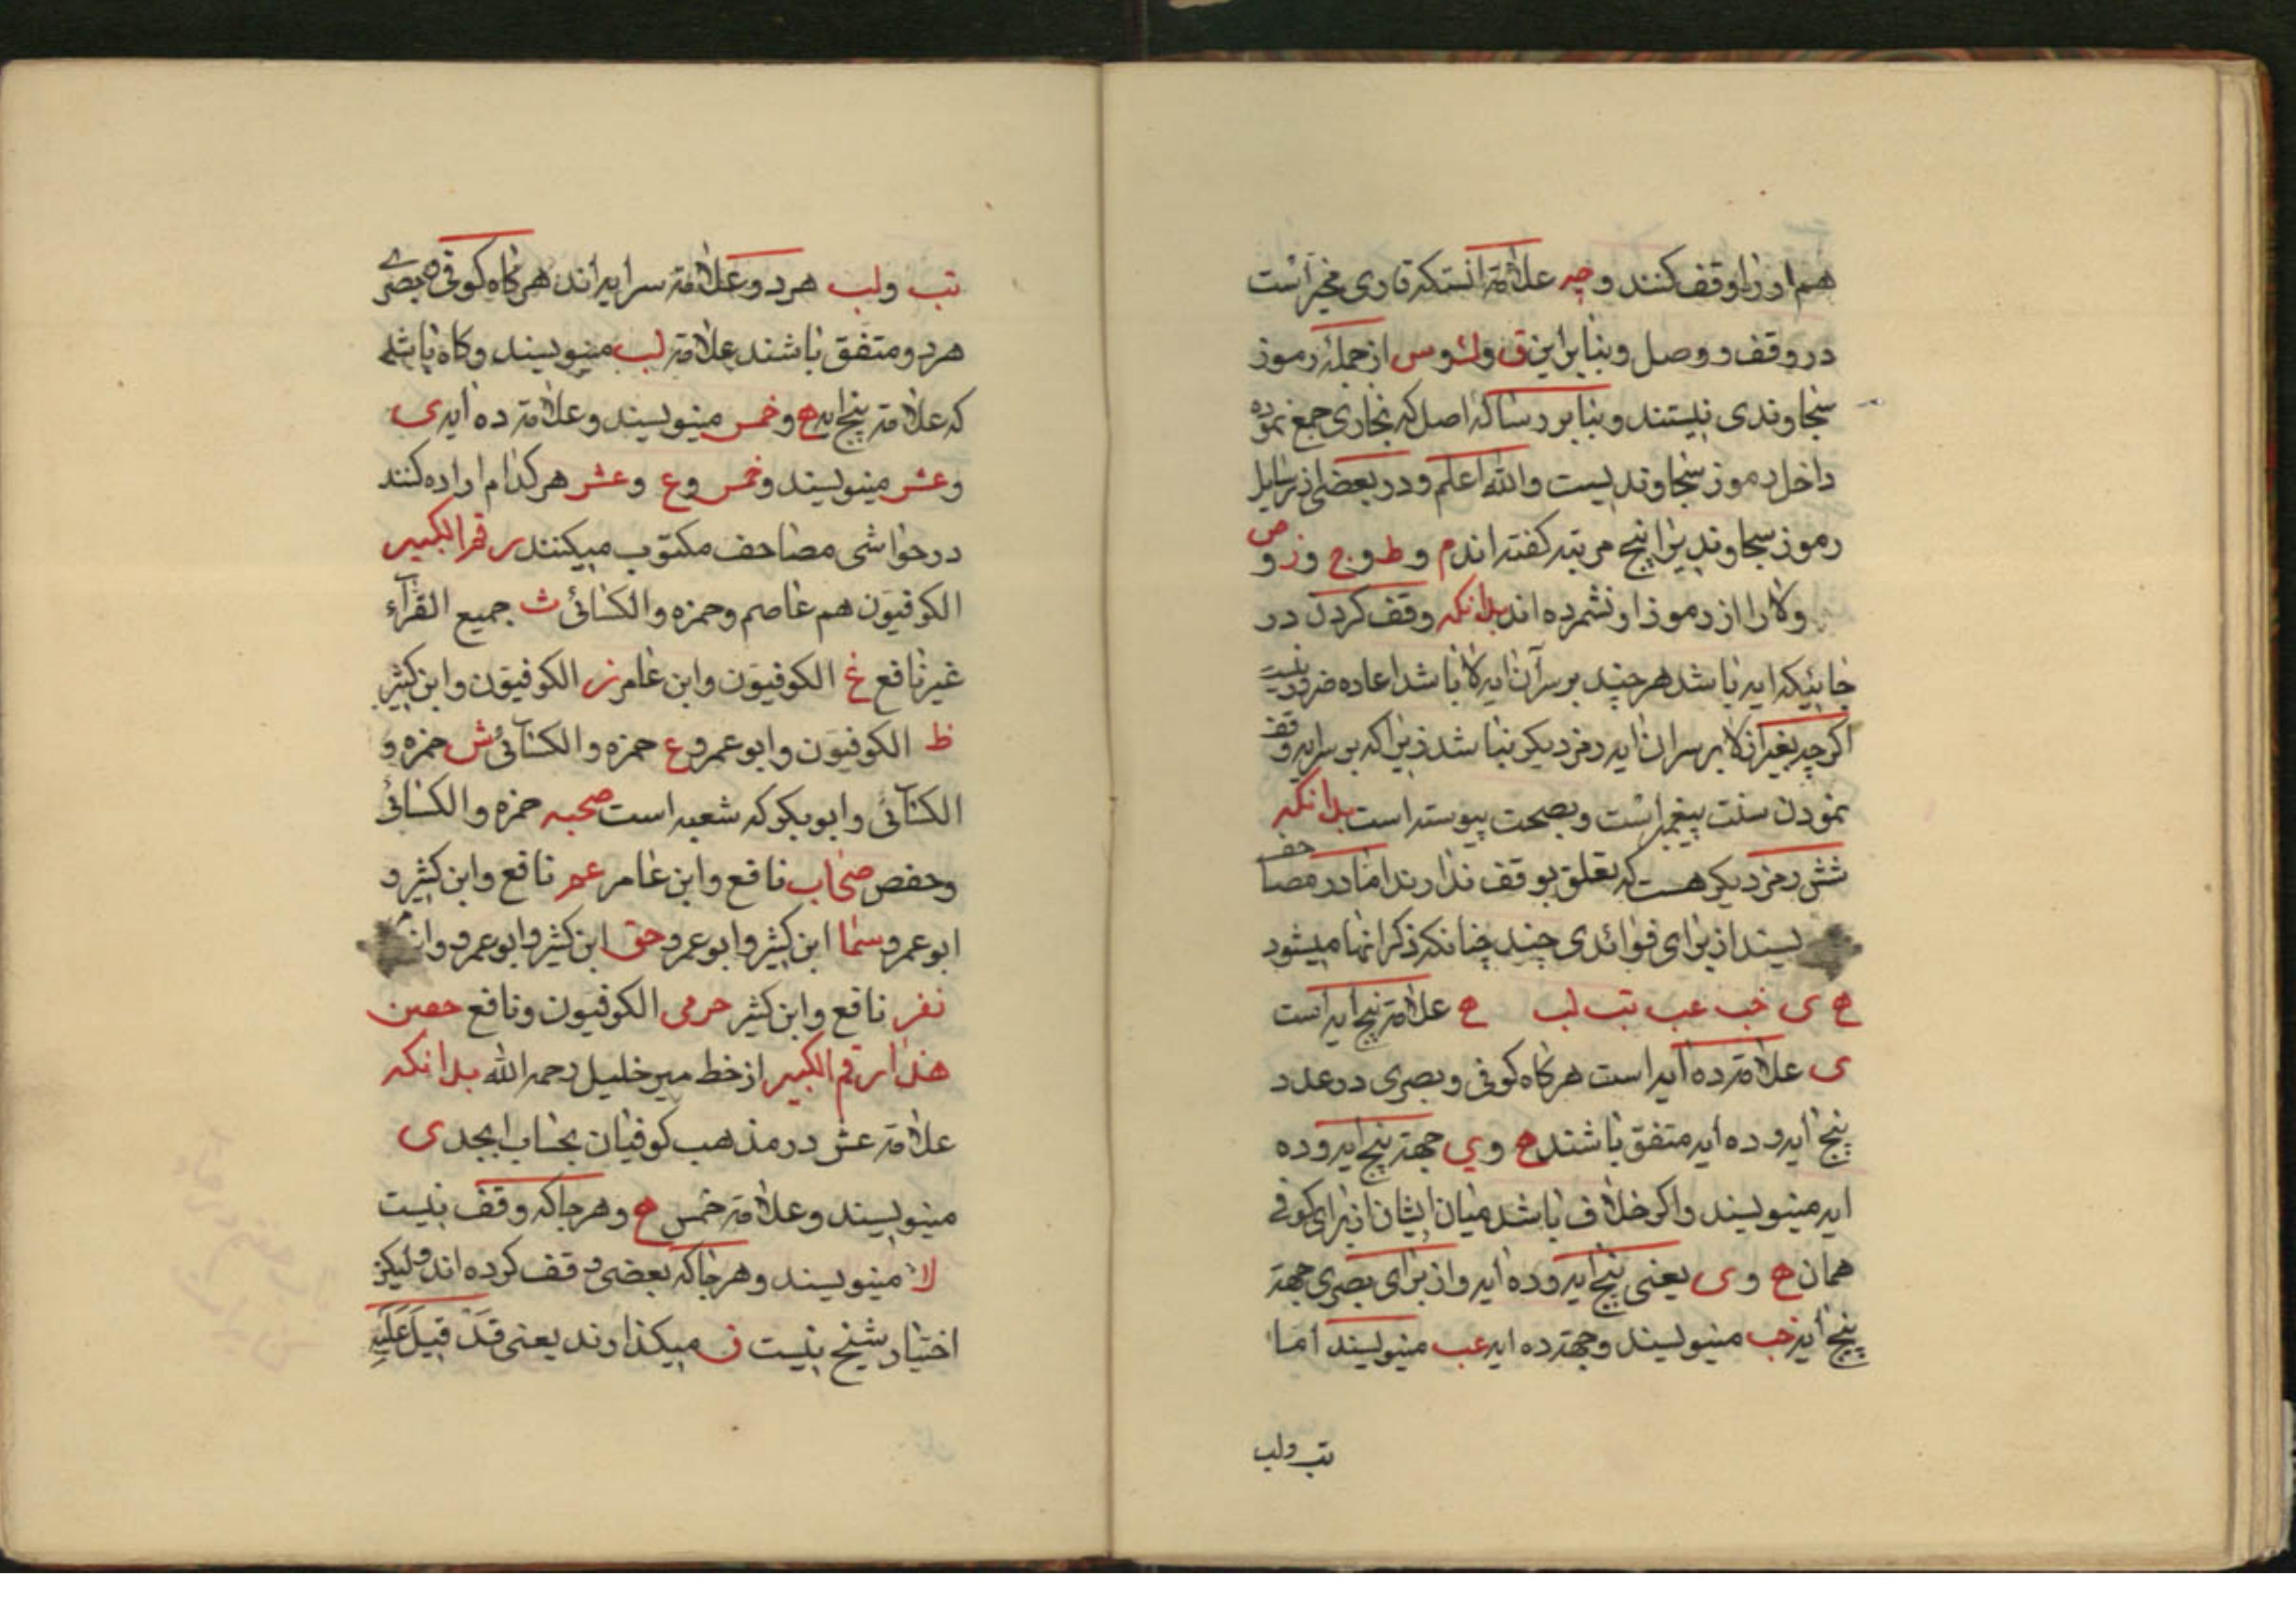 هم او را وقف کنند و جه علامة انستکه قاری مخیر است
در وقف و وصل و بنابراین ق و ك و س از جملهٔ رموز
سجاوندی نیستند و بنابر رساله اصل که بخاری جمع نموده
داخل رموز سجاوند یست والله اعلم و در بعضی از رسایل
رموز سجاوند یرا پنج مرتبه کفته اند م و ط و ج و ز و ص
و لا را از رموز او نشمرده اند بدانکه وقف کردن در
جائیکه ایه باشد هر چند بر سر آن ایه لا باشد اعاده ضرور نیست
اکرچه بغیر از لا بر سر ان ایه رمز دیکر نباشد زیرا که بر سر ایه وقف
نمودن سنت پیغمبر است و بصحت پیوسته است بدانکه
شش رمز دیکر هست که تعلق بوقف ندارند اما در مصاحف
یسند از برای فوائدی چند چنانکه ذکر انها میشود
ه ی خب عب تب لب ه علامة پنج ایه است
ی علامة ده ایه است هرکاه کوفی و بصری در عدد
پنج ایه و ده ایه متفق باشند ه و ی جهة پنج ایه و ده
ایه مینویسند و اکر خلاف باشد میان ایشان از برای کوفی
همان ه و ی یعنی پنج ایه و ده ایه و از برای بصری جهة
پنج ایه خب مینویسند و جهة ده ایه عب مینویسند اما
تب ولب
تب ولب هر دو علامة سر ایه اند هرکاه کوفی و بصری
هر دو متفق باشند علامة لب مینویسند و کاه باشد
که علامة پنج ایه ه و خمس مینویسند و علامة ده ایه ی
و عشر مینویسند و خمس و ع و عشر هر کدام اراده کنند
در حواشی مصاحف مکتوب میکنند رقم الکبیر
الکوفیون هم عاصم و حمزه والکسائی ث جمیع القرآء
غیر نافع خ الکوفیون وابن عامر ذ الکوفیون وابن کثیر
ظ الکوفیون وابو عمرو غ حمزه والکسائی ش حمزه و
الکسائی وابو بکر که شعبه است صحبه حمزه والکسائی
وحفص صحاب نافع وابن عامر عم نافع وابن کثیر و
ابو عمرو سما ابن کثیر وابو عمرو حق ابن کثیر وابو عمرو وابن
نفر نافع وابن کثیر حرمی الکوفیون ونافع حصن
هذا رقم الکبیر از خط میر خلیل رحمه الله بدانکه
علامة عشر در مذهب کوفیان بحساب ابجد ی
مینویسند و علامة خمس ه و هر جا که وقف نیست
لا مینویسند و هر جا که بعضی وقف کرده اند ولیکن
اختیار شیخ نیست ق میکذارند یعنی قد قیل علیه